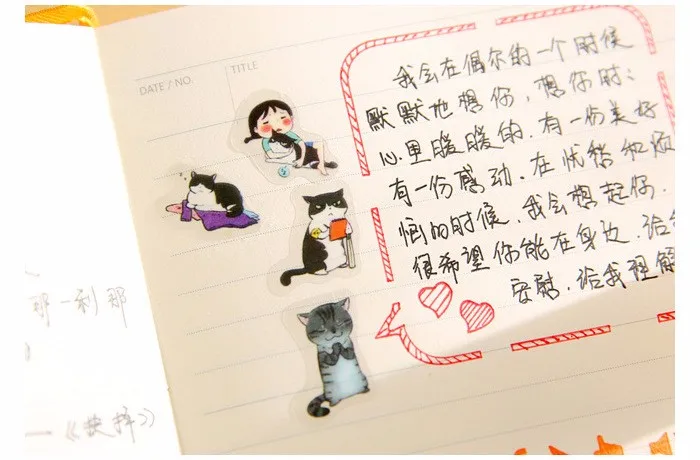 DATE / NO.
TITLE
我会在偶尔的一个时候
默默地想你，想你时：
心里暖暖的．有一份美好
有一份感动．在忧愁和烦
恼的时候．我会想起你．
很希望你能在身边．给
安慰．给我理解
那一刹那
—《抉择》